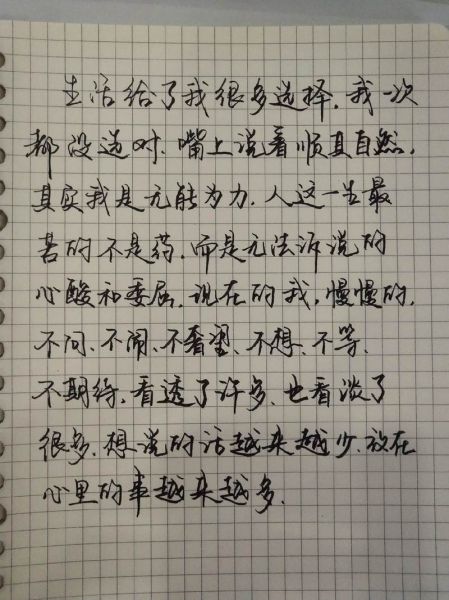 生活给了我很多选择.我一次
都没选对.嘴上说着顺其自然.
其实我是无能为力.人这一生最
苦的不是药.而是无法诉说的
心酸和委屈.现在的我,慢慢的.
不问、不闹、不奢望、不想、不等、
不期待.看透了许多.也看淡了
很多.想说的话越来越少.放在
心里的事越来越多.